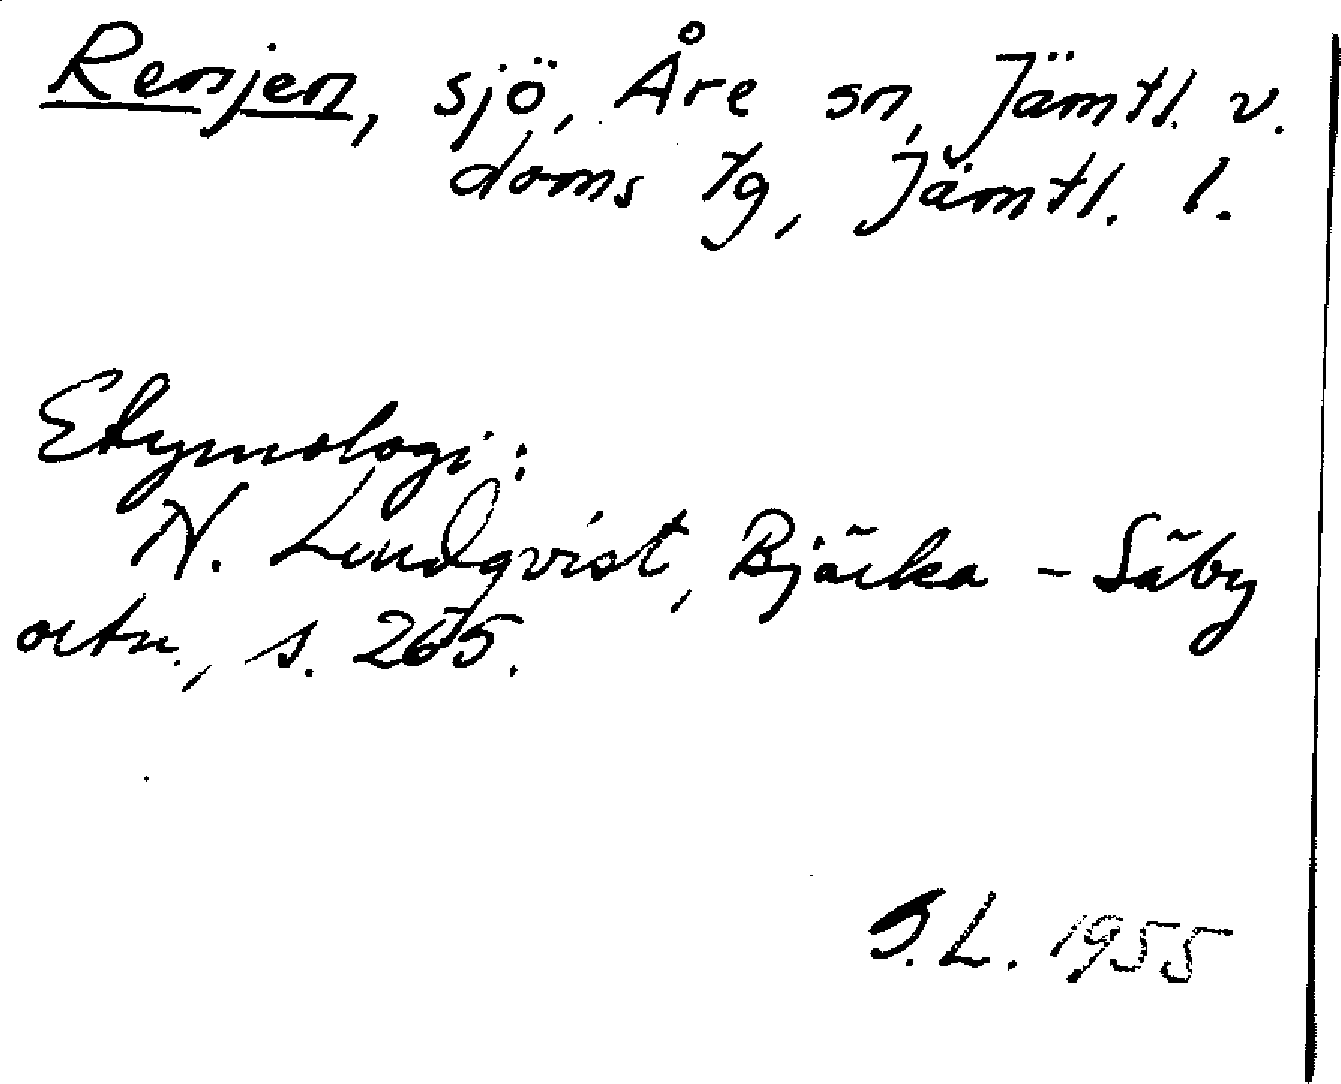 Rensjen, sjö, Åre sn, Jämtl. v.
doms tg, Jämtl. l.
Etymologi:
N. Lindqvist, Bjärka - Säby
ortn., s. 265.
S.L. 1955